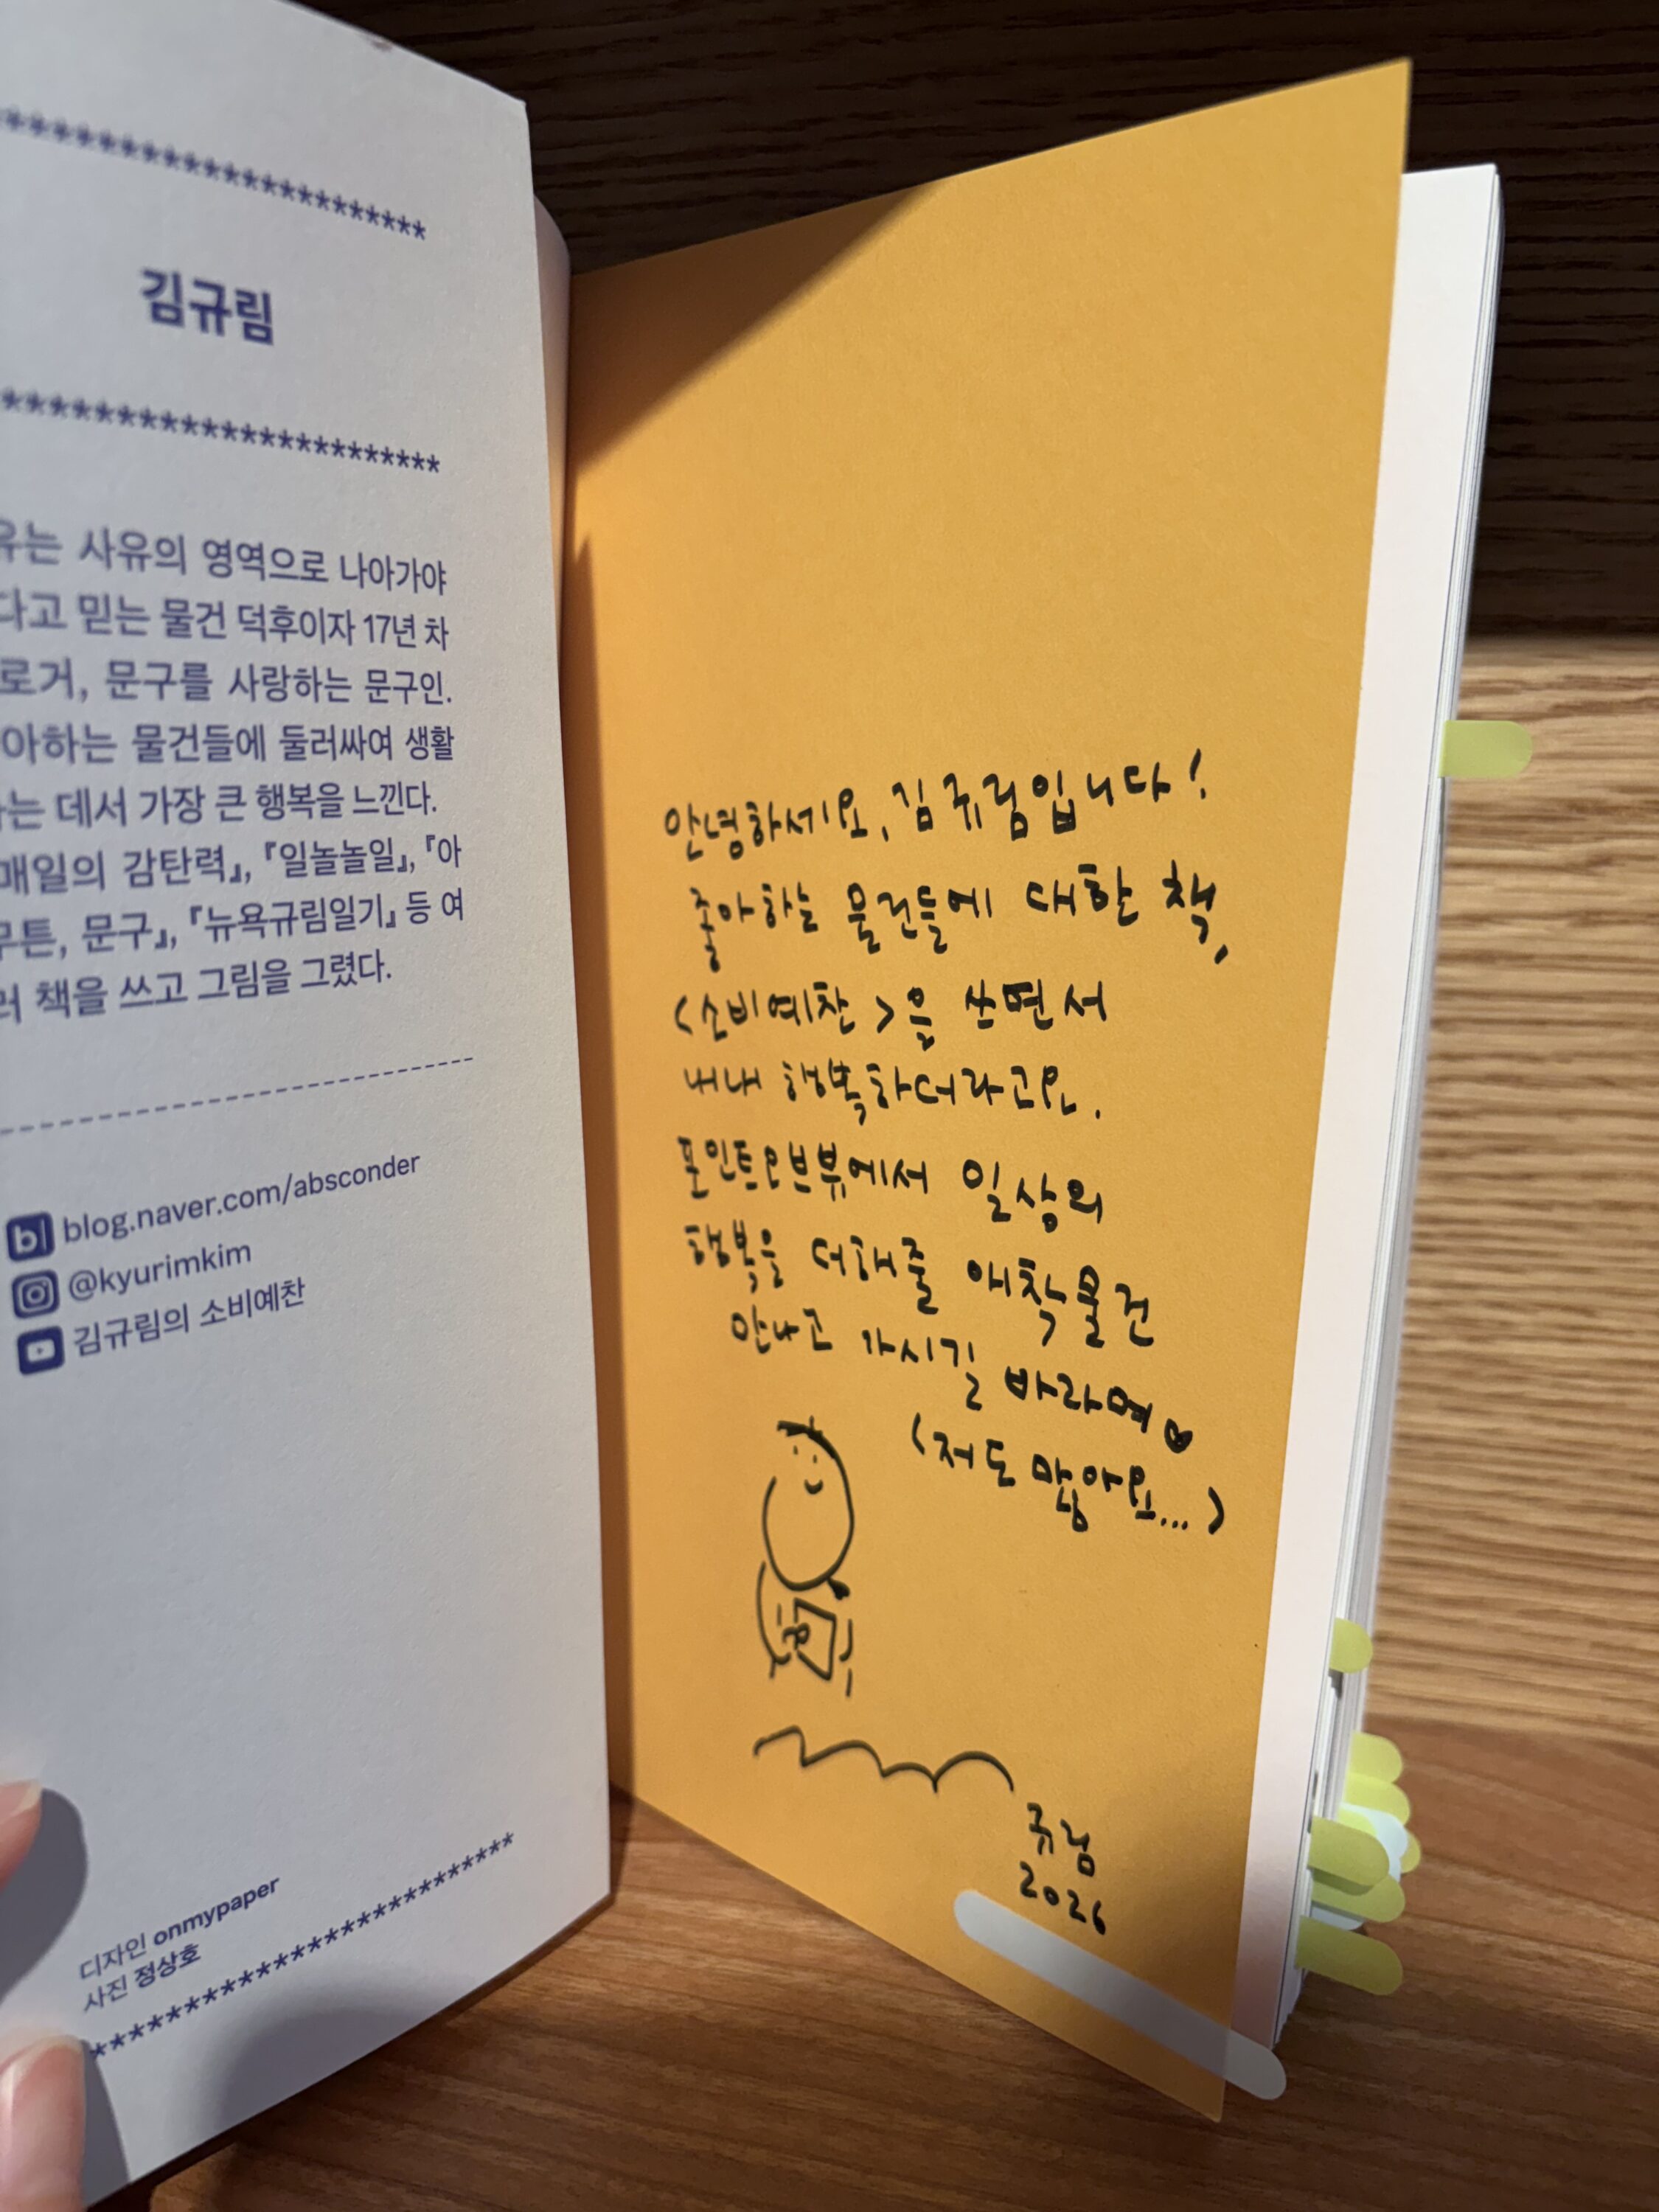 ************************
김규림
************************
유는 사유의 영역으로 나아가야
다고 믿는 물건 덕후이자 17년 차
로거, 문구를 사랑하는 문구인.
아하는 물건들에 둘러싸여 생활
는 데서 가장 큰 행복을 느낀다.
매일의 감탄력』, 『일놀놀일』, 『아
무튼, 문구』, 『뉴욕규림일기』 등 여
러 책을 쓰고 그림을 그렸다.
blog.naver.com/absconder
@kyurimkim
김규림의 소비예찬
디자인 onmypaper
사진 정상호
************************
안녕하세요, 김규림입니다!
좋아하는 물건들에 대한 책,
<소비예찬>을 쓰면서
내내 행복하더라고요.
포인트오브뷰에서 일상의
행복을 더해줄 애착물건
만나고 가시길 바라며♥
(저도 많아요...)
규림
2026